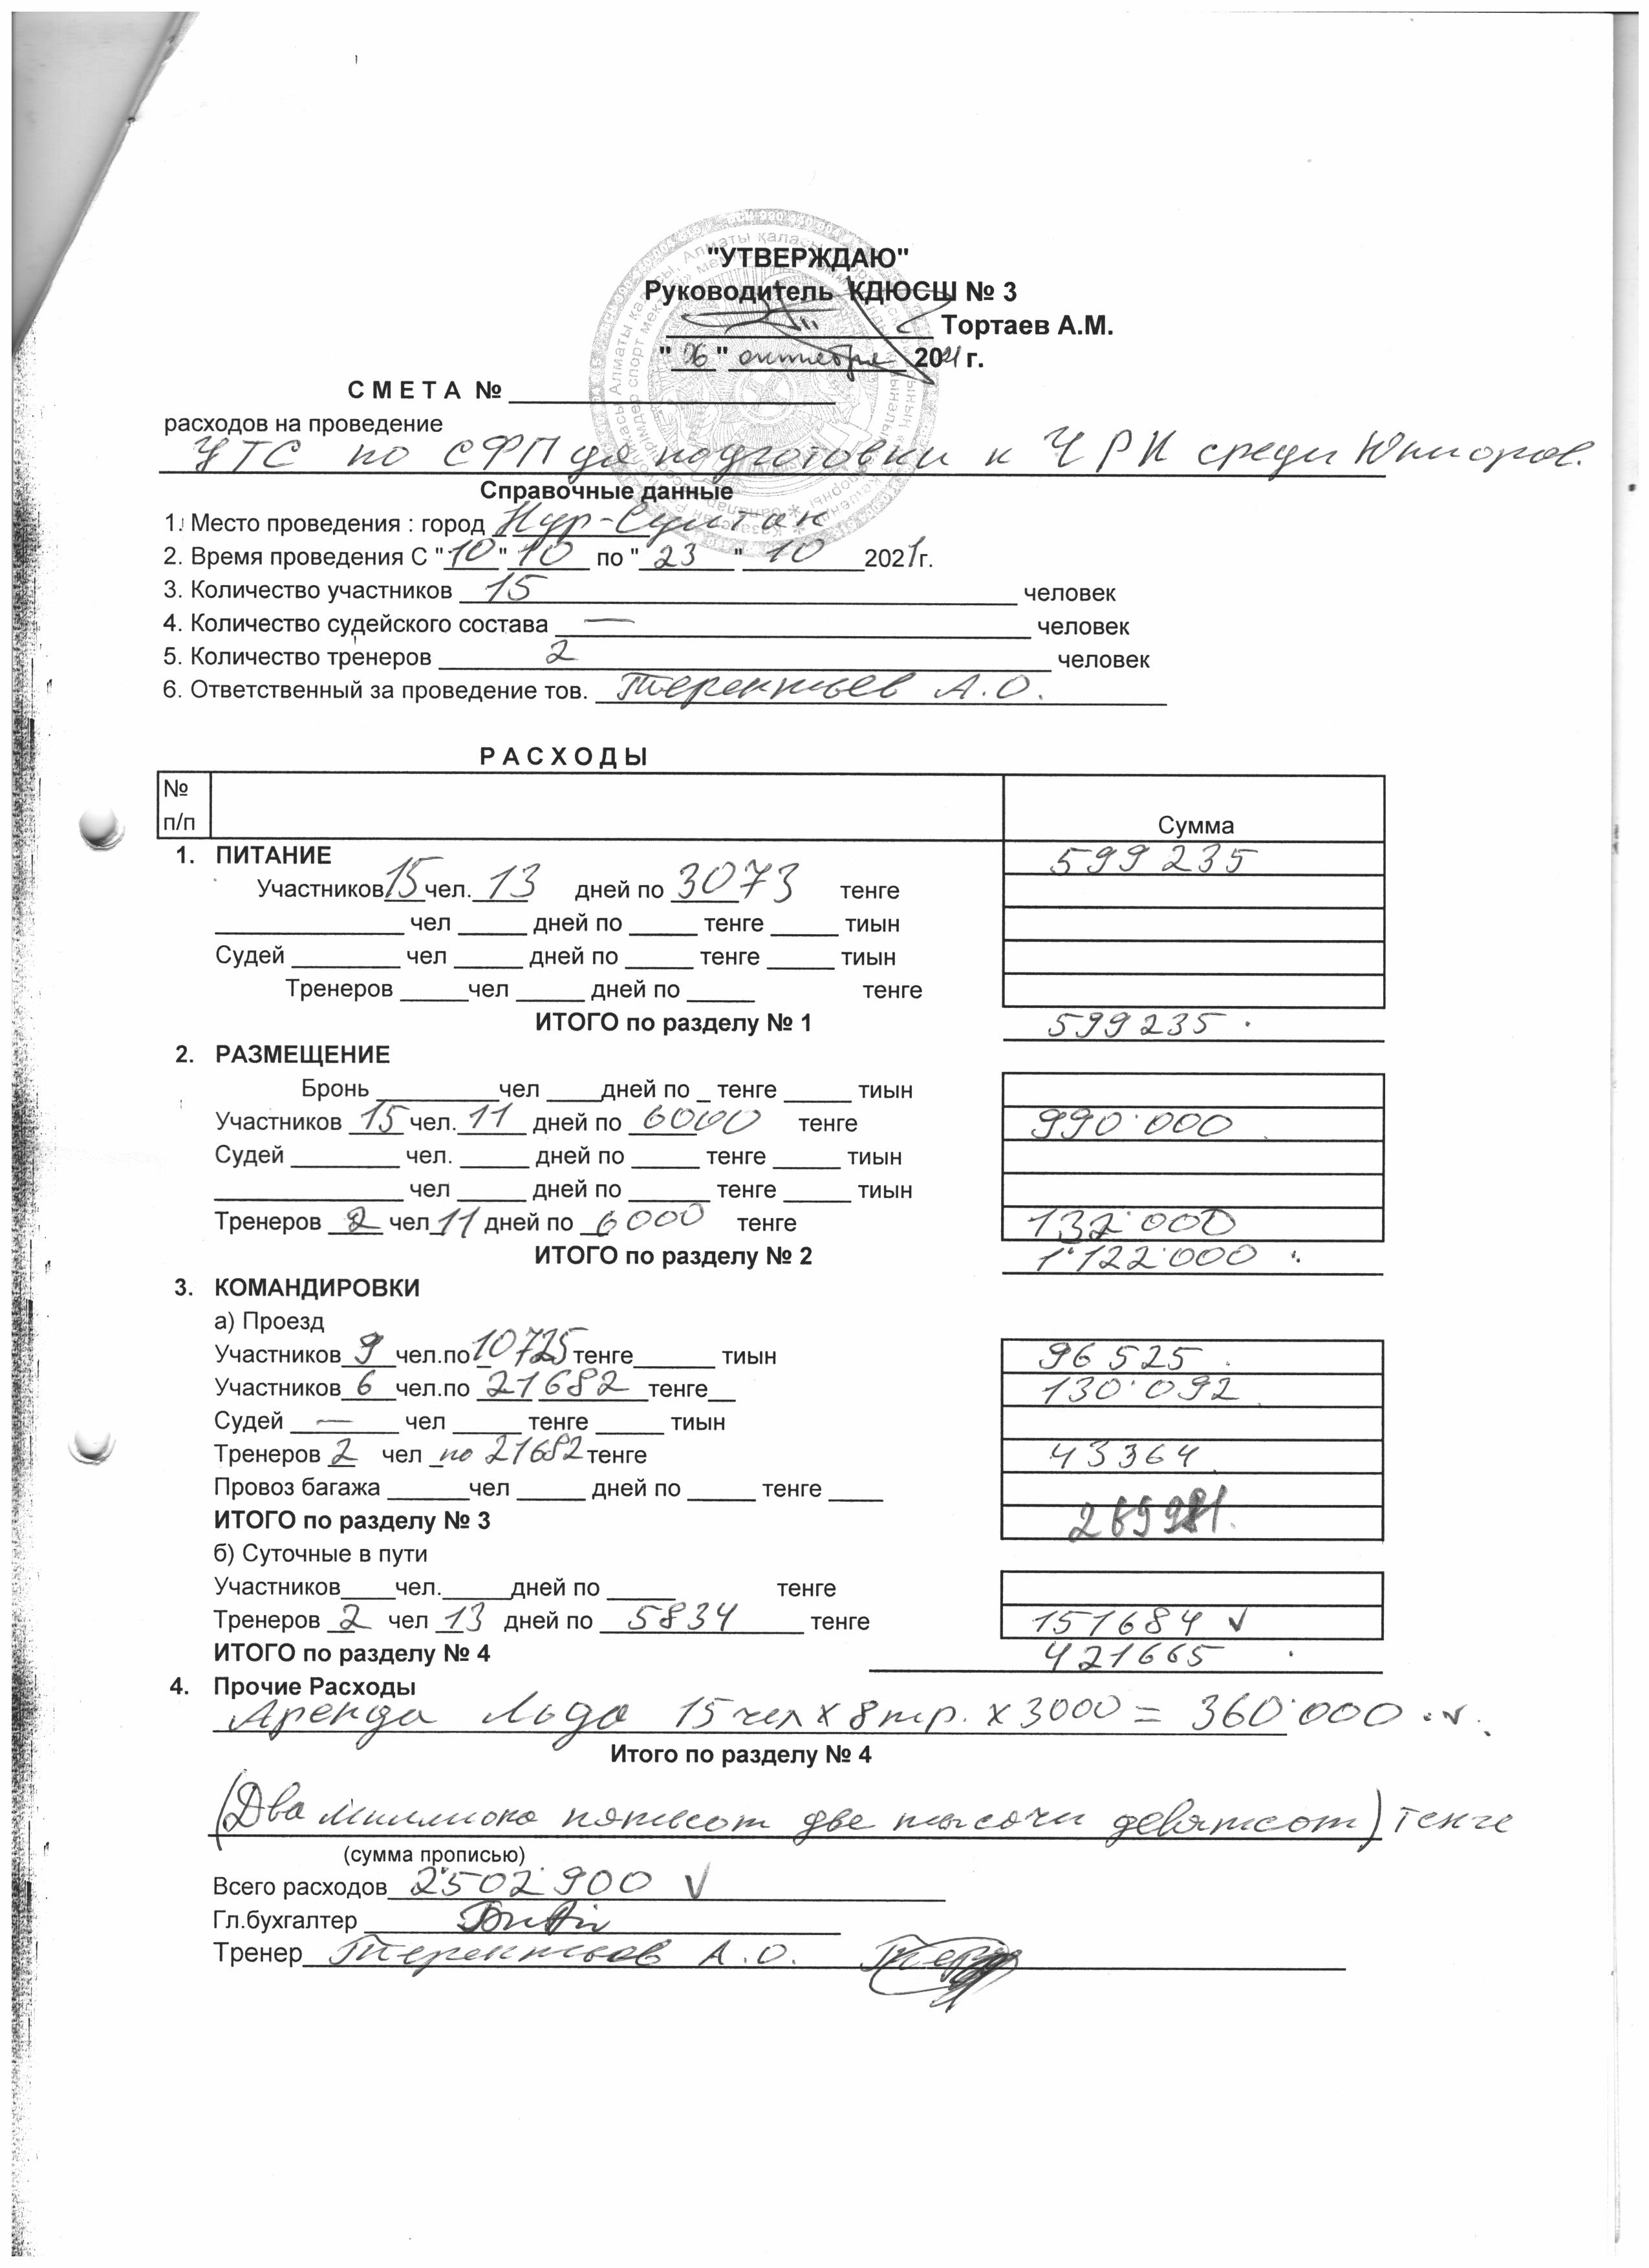 "УТВЕРЖДАЮ"
Руководитель КДЮСШ № 3
Тортаев А.М.
" 06 " октября 2021 г.
С М Е Т А № ____
расходов на проведение
УТС по СФП для подготовки к ЧРК среди Юниоров.
Справочные данные
1. Место проведения : город Нур-Султан
2. Время проведения С "10" 10 по "23" 10 2021г.
3. Количество участников 15 человек
4. Количество судейского состава — человек
5. Количество тренеров 2 человек
6. Ответственный за проведение тов. Терентьев А.О.
Р А С Х О Д Ы
№ п/п Сумма
1. ПИТАНИЕ 599 235
Участников 15 чел. 13 дней по 3073 тенге
____ чел ____ дней по ____ тенге ____ тиын
Судей ____ чел ____ дней по ____ тенге ____ тиын
Тренеров ____ чел ____ дней по ____ тенге
ИТОГО по разделу № 1 599235
2. РАЗМЕЩЕНИЕ
Бронь ____ чел ____ дней по _ тенге ____ тиын
Участников 15 чел. 11 дней по 6000 тенге 990·000
Судей ____ чел. ____ дней по ____ тенге ____ тиын
____ чел ____ дней по ____ тенге ____ тиын
Тренеров 2 чел 11 дней по 6000 тенге 132·000
ИТОГО по разделу № 2 1·122·000
3. КОМАНДИРОВКИ
а) Проезд
Участников 9 чел.по 10725 тенге ____ тиын 96 525
Участников 6 чел.по 21682 тенге 130·092
Судей — чел ____ тенге ____ тиын
Тренеров 2 чел по 21682 тенге 43364
Провоз багажа ____ чел ____ дней по ____ тенге ____
ИТОГО по разделу № 3 269981
б) Суточные в пути
Участников ____ чел. ____ дней по ____ тенге
Тренеров 2 чел 13 дней по 5834 тенге 151684 ✓
ИТОГО по разделу № 4 421665
4. Прочие Расходы
Аренда льда 15 чел х 8 тр. х 3000 = 360·000 ✓
Итого по разделу № 4
(Два миллиона пятьсот две тысячи девятсот) тенге
(сумма прописью)
Всего расходов 2·502·900 ✓
Гл.бухгалтер
Тренер Терентьев А.О.